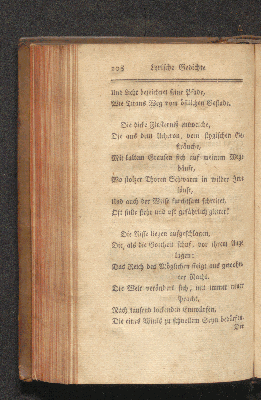 108 Lyrische Gedichte
Und Licht bezeichnet seine Pfade,
Wie Titans Weg vom östlichen Gestade.
Die dicke Finsterniß entwiche,
Die aus dem Acheron, vom stygischen Ge-
sträuche,
Mit kaltem Grausen sich auf meinem Weg
häufte,
Wo stolzer Thoren Schwarm in wilder Irre
läufte,
Und auch der Weise furchtsam schreitet,
Oft stille steht und oft gefährlich gleitet!
Die Risse liegen aufgeschlagen,
Die, als die Gottheit schuf, vor ihrem Auge
lagen:
Das Reich des Möglichen steigt aus gewohn-
ter Nacht.
Die Welt verändert sich, mit immer neuer
Pracht,
Nach tausend lockenden Entwürfen,
Die eines Winks zu schnellem Seyn bedürfen.
Die